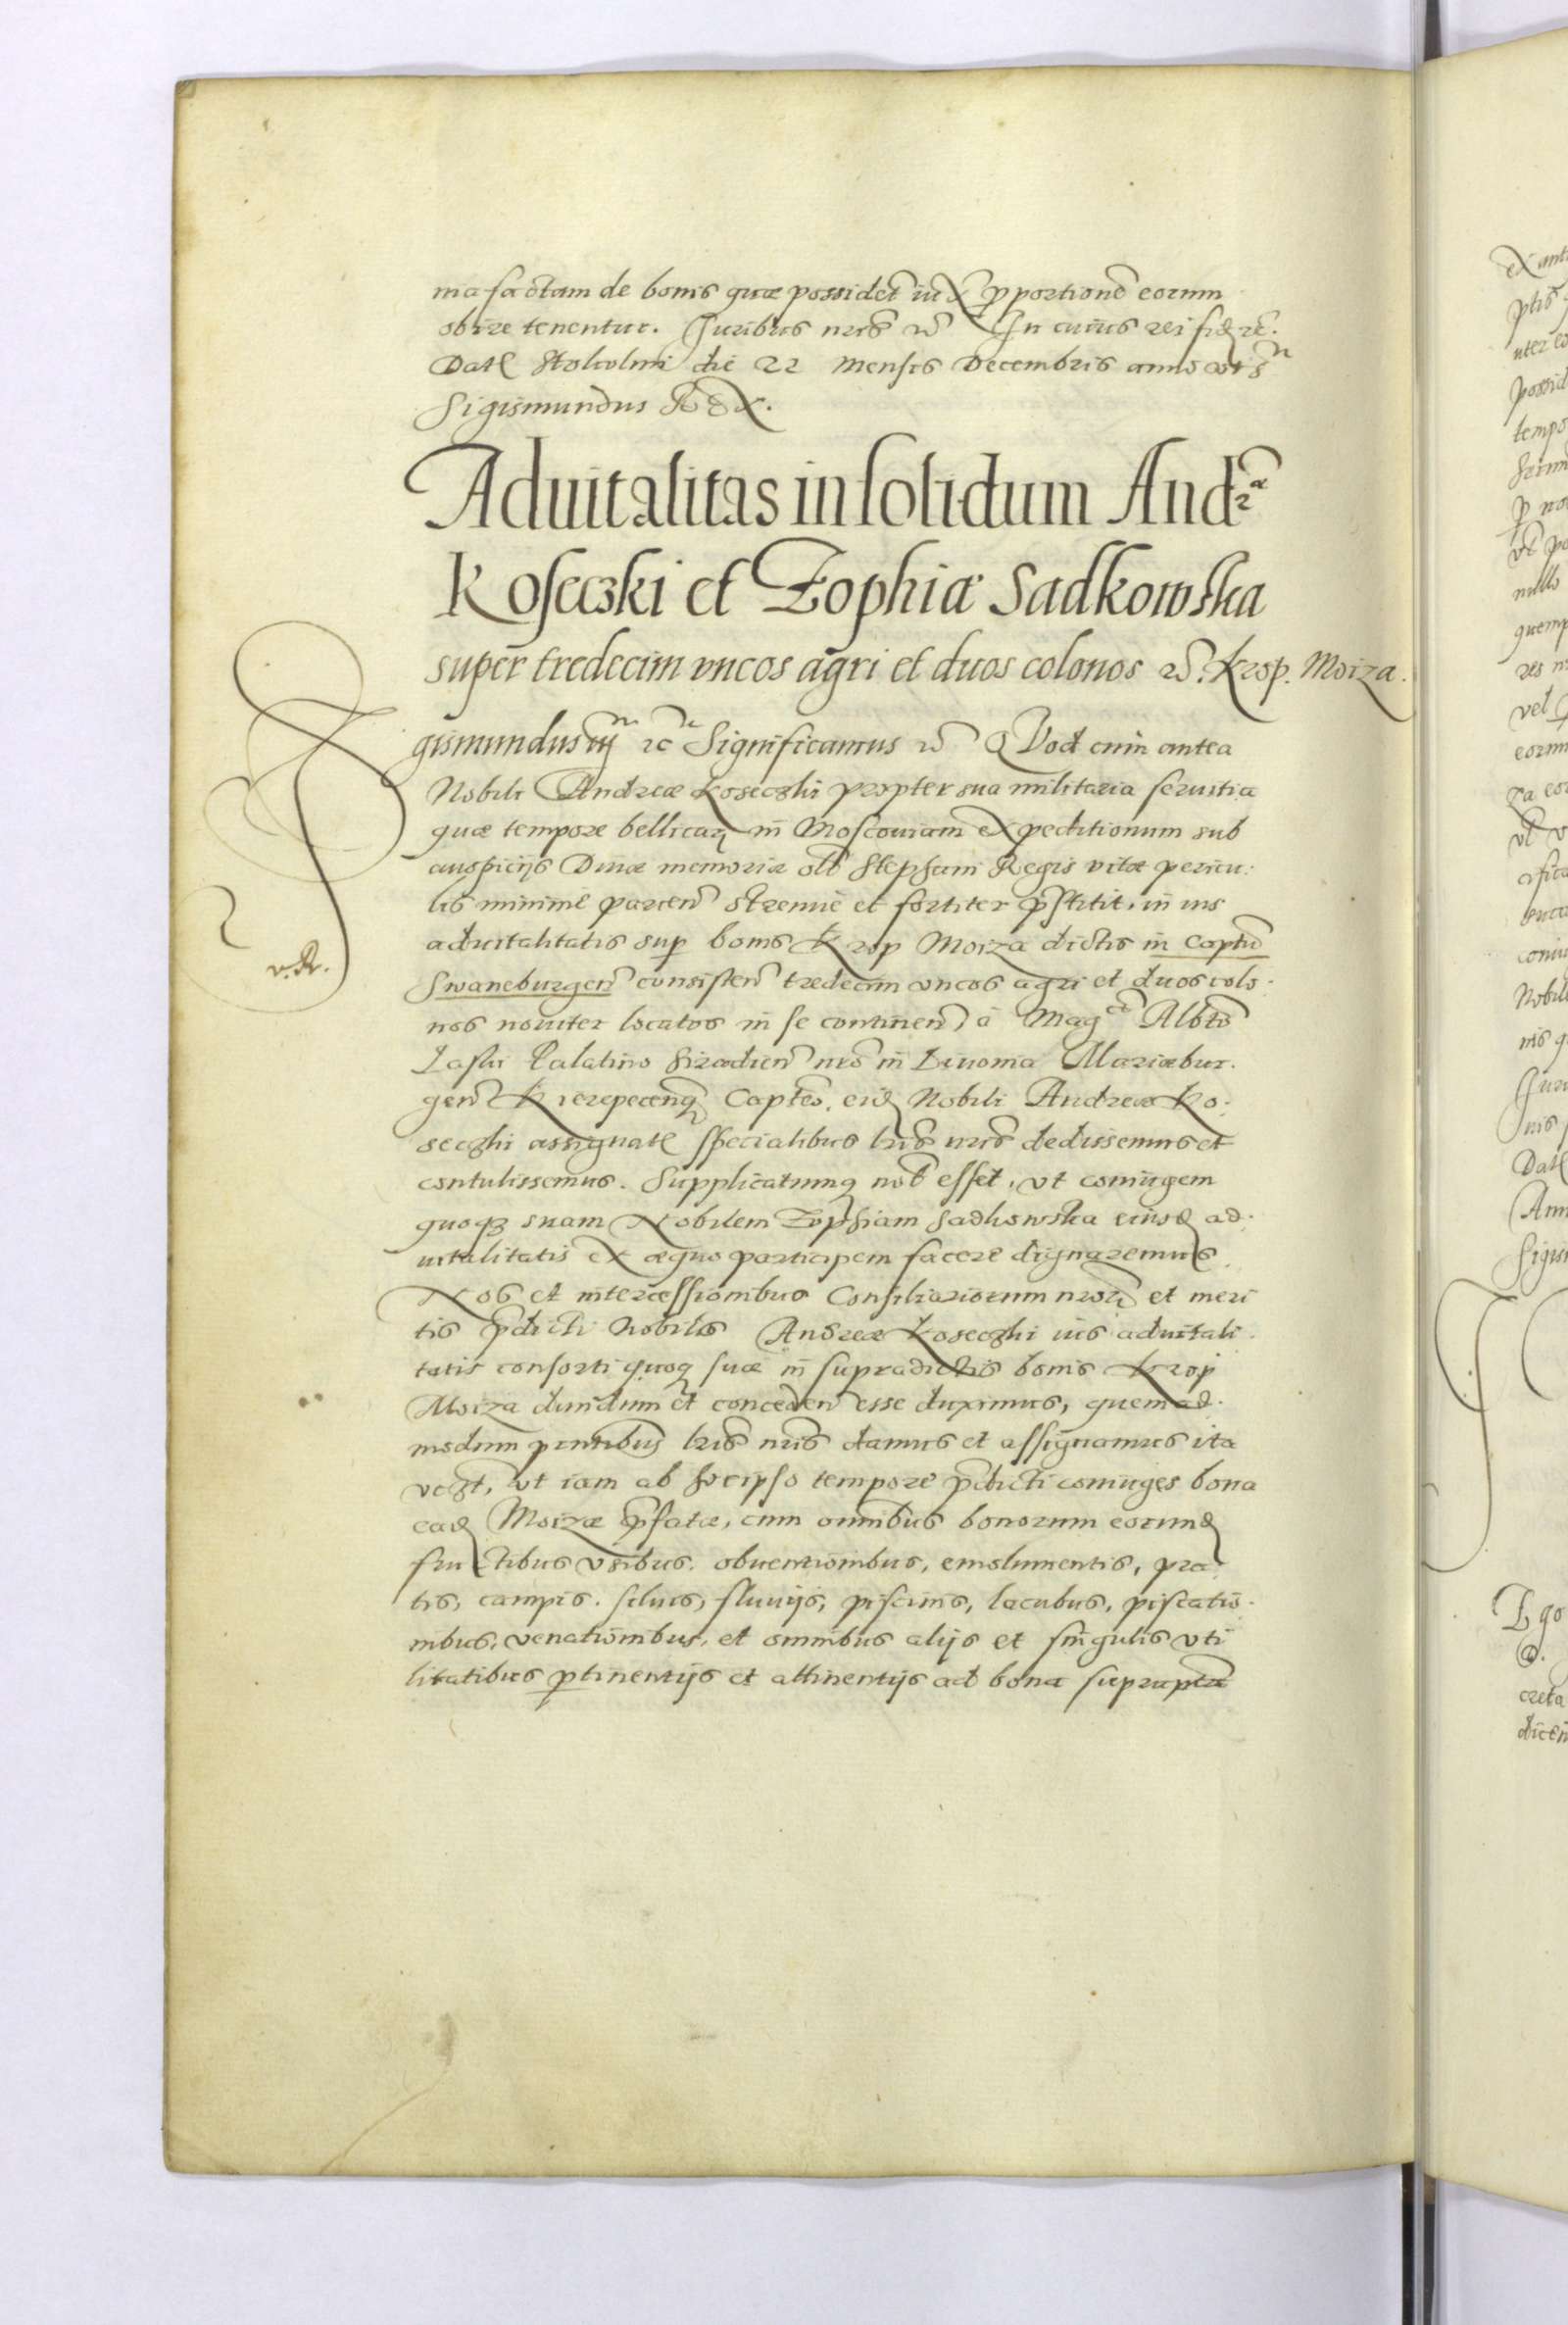 ma factam de bonis quæ possidet iux pportione eorum
obire tenentur. Juribus nris etc In cuius rei fidē etc.
Datē Stolcolmi die 22 Mensis Decembris anno vt sa
Sigismundus REX.
Aduitalitas in solidum Andræ
Koseczki et Zophiæ Sadkowska
super tredecim vncos agri et duos colonos etc. Krop. Moiza.
Sigismundus iij etc Significamus etc QVod cum antea
Nobili Andreæ Koseczki propter sua militaria seruitia
quæ tempore bellicarū in Moscouiam expeditionum sub
auspicijs Diuæ memoriæ oli Stephani Regis vitæ pericu-
lis minime parcen strenue et fortiter pstitit, in ius
aduitalitatis sup bonis Krop Moiza dictis in captu
Swaneburgen consisten tredecim vncos agri et duos colo-
nos nouiter locatos in se continen, a Magco Albto
Laski Palatino Siradien nro in Liuonia Mariæbur-
gen Kierepecenq Capteo, eid Nobili Andreæ Ko-
seczki assignatē specialibus lris nris dedissemus et
contulissemus. Supplicatumq nob esset, vt coniugem
quoqz suam Nobilem Zophiam Sadkowska eiusd ad-
uitalitatis ex æquo participem facere dignaremus.
Nos et intercessionibus Consiliariorum nrorū et meri
tis pdicti Nobilis Andreæ Koseczki ius aduitali-
tatis consorti quoq suæ in supradictis bonis Krop
Moiza dandum et conceden esse duximus, quemad-
modum pntibus lris nris damus et assignamus ita
vczt, vt iam ab hocipso tempore pdicti coniuges bona
ead Moizæ pfatæ, cum omnibus bonorum eorund
fructibus vsibus, obuentionibus, emolumentis, pra-
tis, campis, siluis, fluuijs, piscinis, lacubus, piscatio-
nibus, venationibus, et omnibus alijs et singulis vti
litatibus ptinentijs et attinentijs ad bona suprapta
v. R.